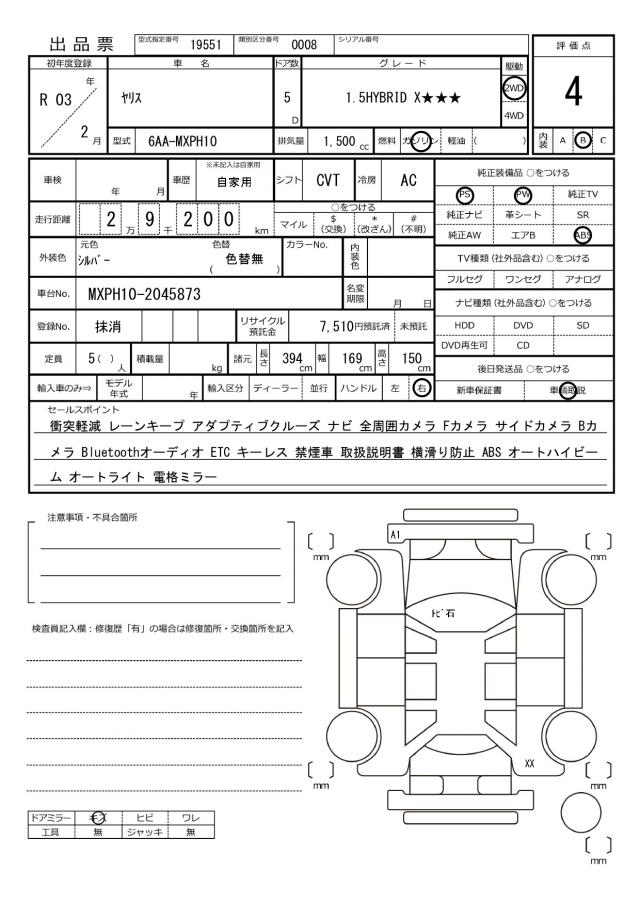 出品票 型式指定番号 19551 類別区分番号 0008 シリアル番号
評価点
4
初年度登録 車名 ドア数 グレード 駆動
R 03 年 2 月 ヤリス 5 D 1.5HYBRID X★★★ 2WD 4WD
型式 6AA-MXPH10 排気量 1,500 cc 燃料 ガソリン 軽油 ( )
内装 A B C
車検 年 月 車歴 ※未記入は自家用 自家用 シフト CVT 冷房 AC
走行距離 2 万 9 千 2 0 0 km
○をつける
マイル $(交換) *(改ざん) #(不明)
外装色 元色 シルバー 色替 ( 色替無 ) カラーNo. 内装色
車台No. MXPH10-2045873 名変期限 月 日
登録No. 抹消 リサイクル預託金 7,510円預託済 未預託
定員 5 ( ) 人 積載量 kg 諸元 長さ 394 cm 幅 169 cm 高さ 150 cm
輸入車のみ⇒ モデル年式 年 輸入区分 ディーラー 並行 ハンドル 左 右
純正装備品 ○をつける
PS PW 純正TV
純正ナビ 革シート SR
純正AW エアB ABS
TV種類 (社外品含む) ○をつける
フルセグ ワンセグ アナログ
ナビ種類 (社外品含む) ○をつける
HDD DVD SD
DVD再生可 CD
後日発送品 ○をつける
新車保証書 車輌取説
セールスポイント
衝突軽減 レーンキープ アダプティブクルーズ ナビ 全周囲カメラ Fカメラ サイドカメラ Bカ
メラ Bluetoothオーディオ ETC キーレス 禁煙車 取扱説明書 横滑り防止 ABS オートハイビー
ム オートライト 電格ミラー
注意事項・不具合箇所
検査員記入欄：修復歴「有」の場合は修復箇所・交換箇所を記入
A1
[ ] mm
[ ] mm
トビ石
XX
[ ] mm
[ ] mm
[ ] mm
ドアミラー キズ ヒビ ワレ
工具 無 ジャッキ 無